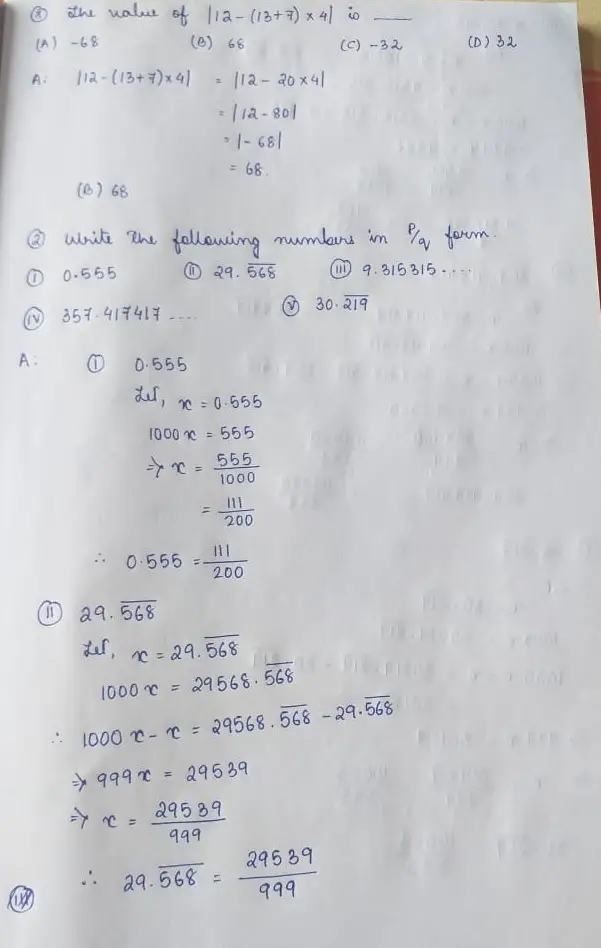 ⑧ The value of |12-(13+7)×4| is ___
(A) -68 (B) 68 (C) -32 (D) 32
A: |12-(13+7)×4| = |12-20×4|
= |12-80|
= |-68|
= 68.
(B) 68
② Write the following numbers in P/q form.
(i) 0.555 (ii) 29.5̅6̅8̅ (iii) 9.315315.....
(iv) 357.417417.... (v) 30.2̅1̅9̅
A: (i) 0.555
Let, x = 0.555
1000x = 555
⇒ x = 555/1000
= 111/200
∴ 0.555 = 111/200
(ii) 29.5̅6̅8̅
Let, x = 29.5̅6̅8̅
1000x = 29568.5̅6̅8̅
∴ 1000x - x = 29568.5̅6̅8̅ - 29.5̅6̅8̅
⇒ 999x = 29539
⇒ x = 29539/999
∴ 29.5̅6̅8̅ = 29539/999